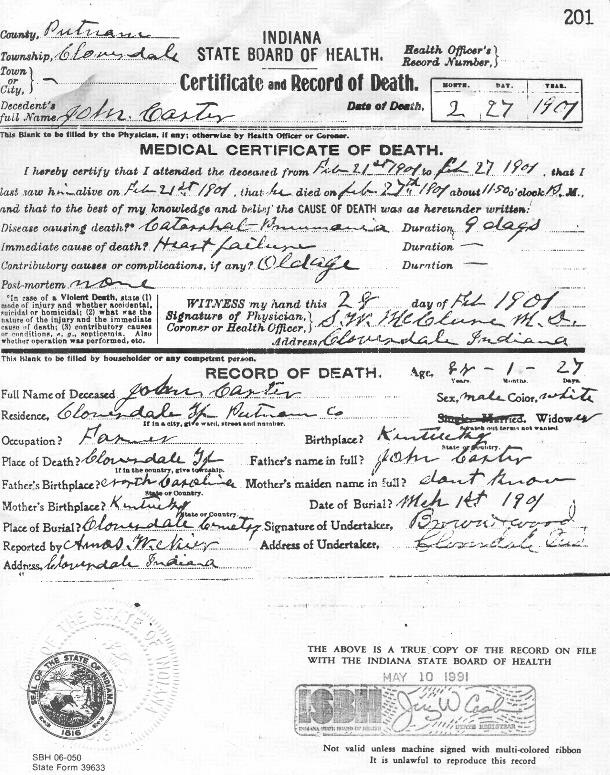 201
County, Putnam
INDIANA
Township, Cloverdale
STATE BOARD OF HEALTH.
Health Officer's }
Record Number, }
Town or City, } —
Certificate and Record of Death.
MONTH. DAY. YEAR.
Decedent's full Name John Carter
Date of Death, 2 27 1901
This Blank to be filled by the Physician, if any; otherwise by Health Officer or Coroner.
MEDICAL CERTIFICATE OF DEATH.
I hereby certify that I attended the deceased from Feb 21st 1901 to Feb 27 1901, that I
last saw him alive on Feb 21st 1901, that he died on Feb 27th 1901 about 11:50 o'clock M.,
and that to the best of my knowledge and belief the CAUSE OF DEATH was as hereunder written:
Disease causing death?* Catarrhal Pneumonia Duration, 9 days
Immediate cause of death? Heart failure Duration —
Contributory causes or complications, if any? Old age Duration —
Post-mortem none
*In case of a Violent Death, state (1)
mode of injury and whether accidental,
suicidal or homicidal; (2) what was the
nature of the injury and the immediate
cause of death; (3) contributory causes
or conditions, e. g., septicemia. Also
whether operation was performed, etc.
WITNESS my hand this 28 day of Feb 1901
Signature of Physician, Coroner or Health Officer, } S. W. McClure M. D.
Address Cloverdale Indiana
This Blank to be filled by householder or any competent person.
RECORD OF DEATH.
Age, 84 – 1 – 27
Years. Months. Days.
Full Name of Deceased John Carter
Sex, male Color, white
Residence, Cloverdale Tp Putnam Co
If in a city, give ward, street and number.
Single Married. Widower
Scratch out terms not wanted.
Occupation? Farmer
Birthplace? Kentucky
State or Country.
Place of Death? Cloverdale Tp
If in the country, give township.
Father's name in full? John Carter
Father's Birthplace? North Carolina
State or Country.
Mother's maiden name in full? dont know
Mother's Birthplace? Kentucky
State or Country.
Date of Burial? Mch 1st 1901
Place of Burial? Cloverdale Cemetry
Signature of Undertaker,
Reported by Amos
Address of Undertaker, Cloverdale Ind
Address, Cloverdale Indiana
SEAL OF THE STATE OF INDIANA
1816
THE ABOVE IS A TRUE COPY OF THE RECORD ON FILE
WITH THE INDIANA STATE BOARD OF HEALTH
MAY 10 1991
ISBH
INDIANA STATE BOARD OF HEALTH
STATE REGISTRAR
Not valid unless machine signed with multi-colored ribbon
It is unlawful to reproduce this record
SBH 06-050
State Form 39633